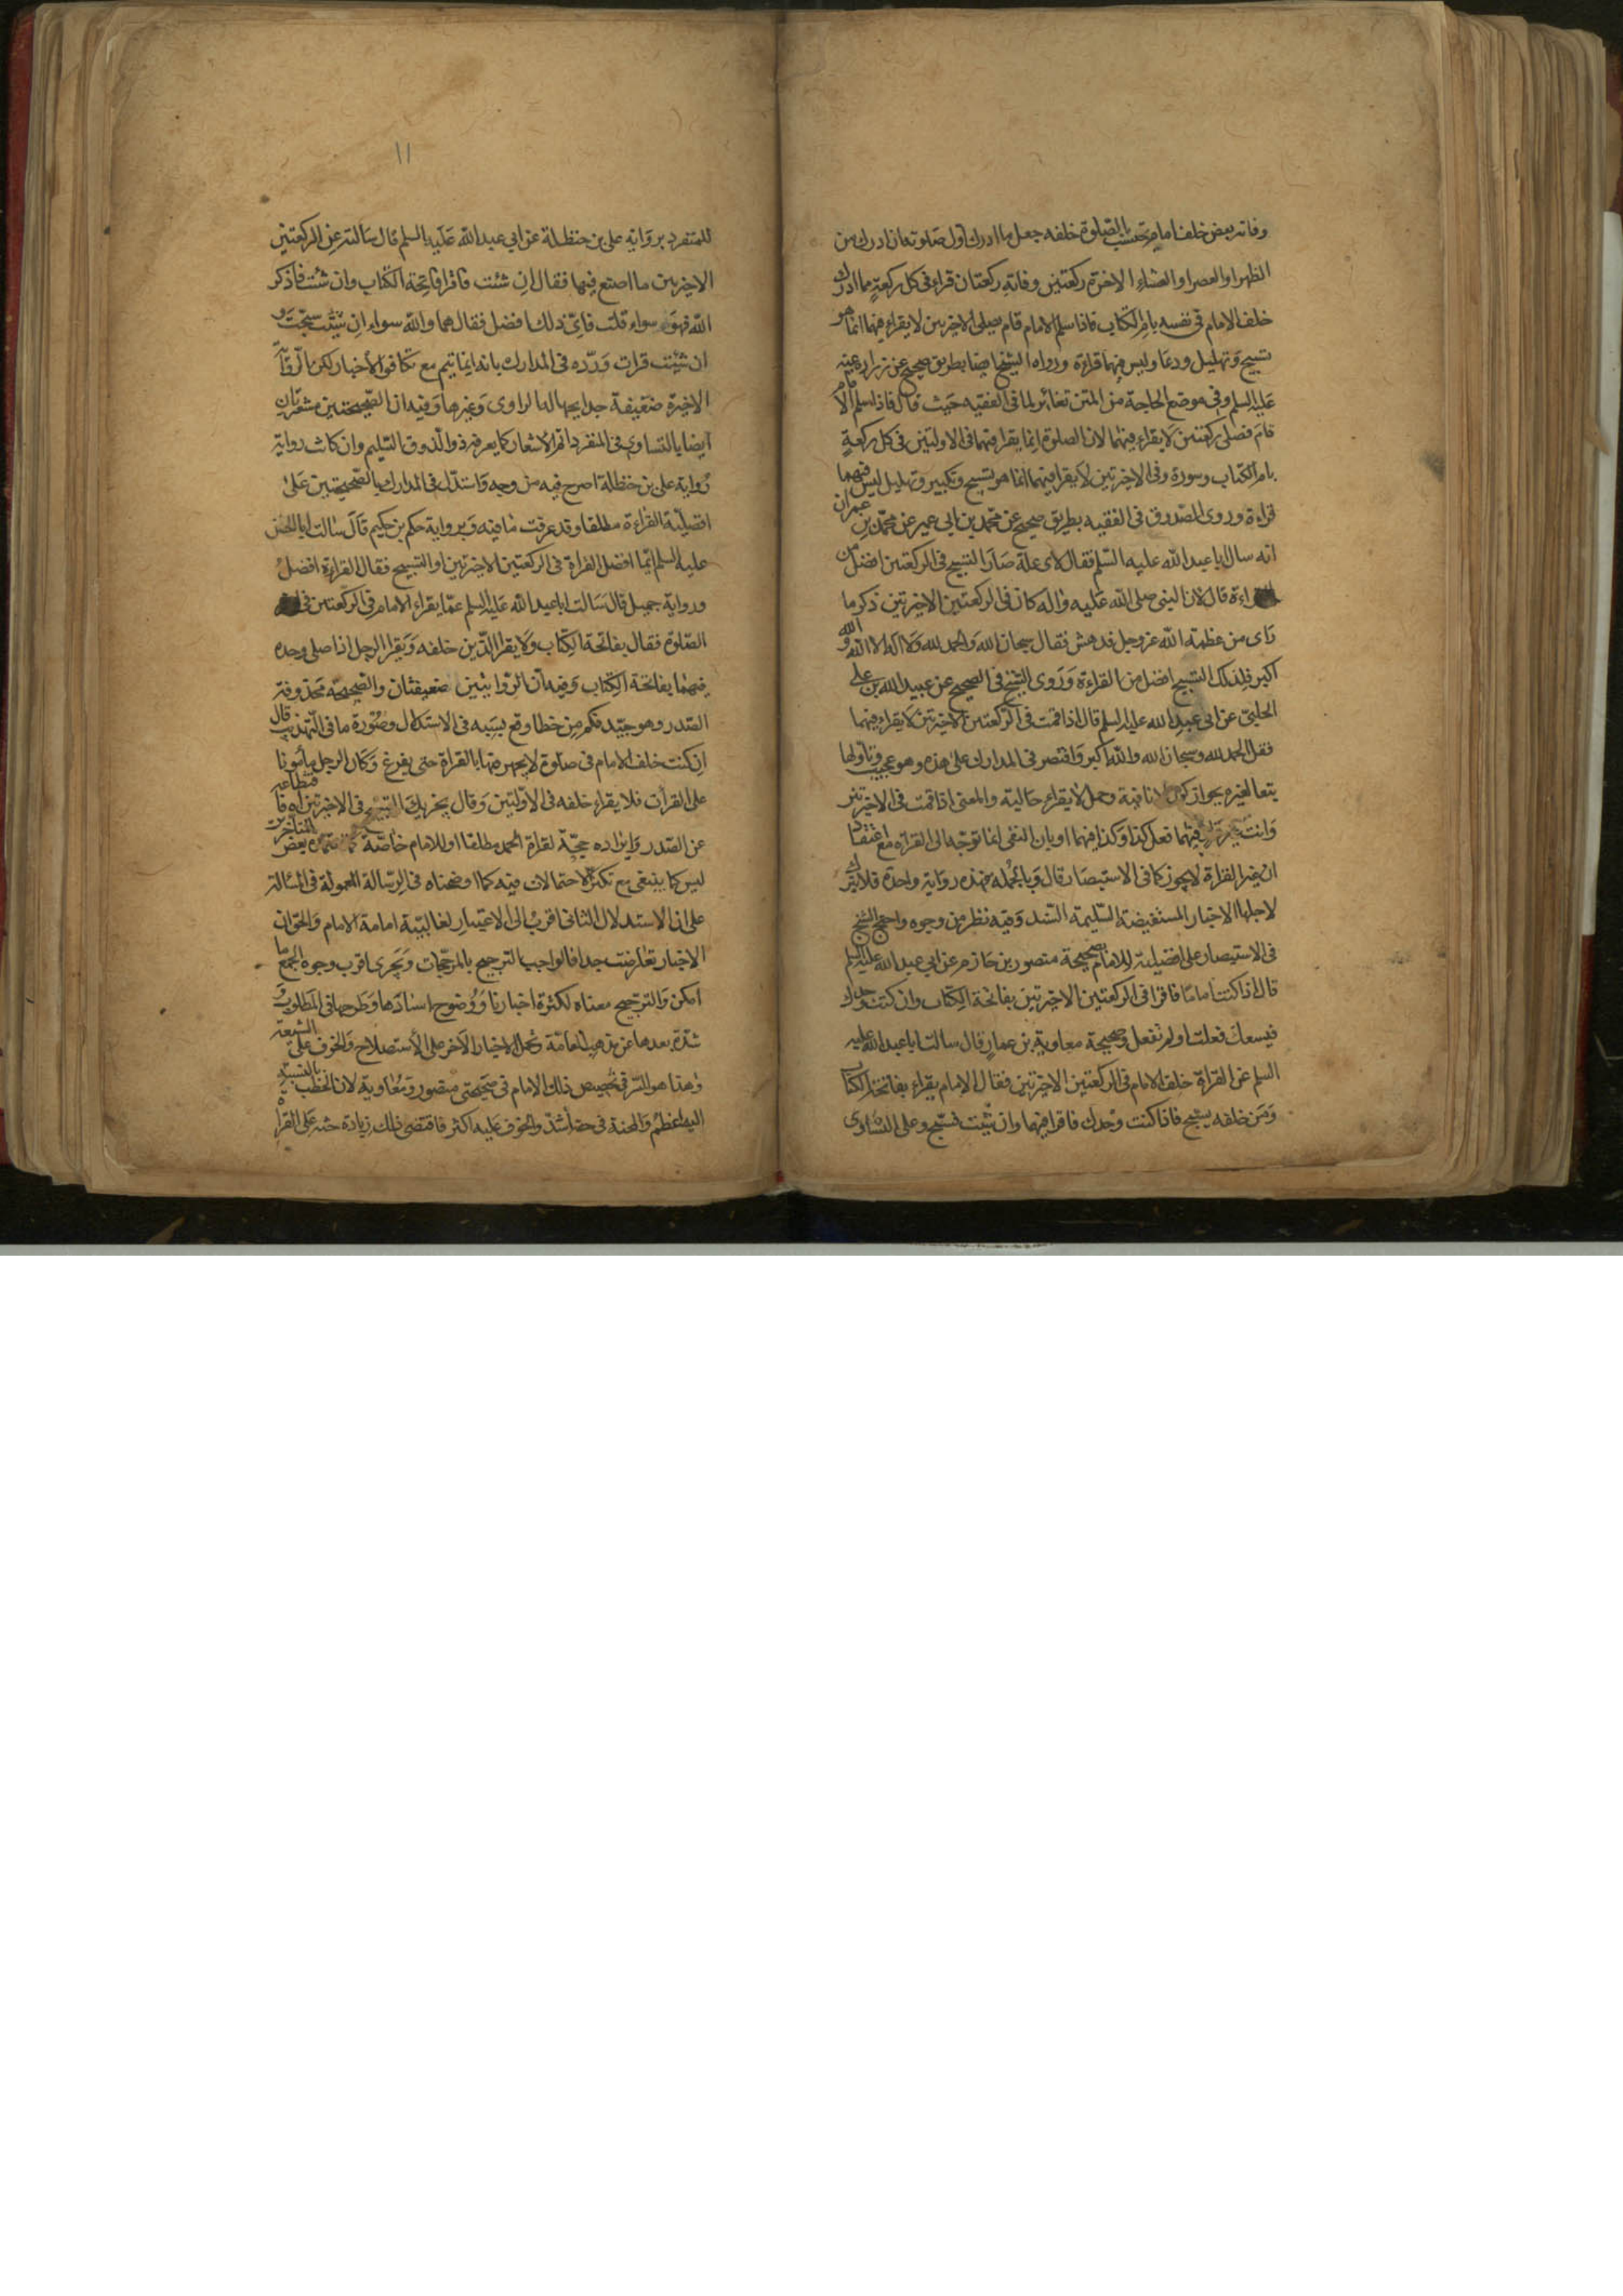 وفاته بعض خلف امام يحتسب بالصلوة خلفه جعل ما ادرك اول صلوته ان ادرك من
الظهر او العصر او العشاء الاخرة ركعتين وفاته ركعتان قراء في كل ركعة مما ادرك
خلف الامام في نفسه بام الكتاب فاذا سلم الامام قام يصلى الاخرتين لا يقراء فيهما انما هو
تسبيح وتهليل ودعا وليس فيهما قراءة ورواه الشيخ ايضا بطريق صحيح عن زرارة عنه
عليه السلم وفي موضع الحاجة من المتن تغائر لما في الفقيه حيث قال فاذا سلم الامام
قام فصلى ركعتين لا يقراء فيهما لان الصلوة انما يقرا فيهما في الاولتين في كل ركعة
بام الكتاب وسورة وفي الاخرتين لا يقرا فيهما انما هو تسبيح وتكبير وتهليل ليس فيهما
قراءة وروى الصدوق في الفقيه بطريق صحيح عن محمد بن ابي عمير عن محمد بن عمران
انه سال ابا عبد الله عليه السلم فقال لاى علة صار التسبيح في الركعتين افضل من
القراءة قال لان النبي صلى الله عليه واله كان في الركعتين الاخيرتين ذكر ما
راى من عظمة الله عز وجل فدهش فقال سبحان الله والحمد لله ولا اله الا الله والله
اكبر فلذلك التسبيح افضل من القراءة وروى الشيخ في الصحيح عن عبيد الله بن على
الحلبي عن ابي عبد الله عليه السلم قال اذا قمت في الركعتين الاخيرتين لا يقراء فيهما
فقل الحمد لله وسبحان الله والله اكبر واقتصر في المدارك على هذه وهو عجيب وتاولها
يتعا لغيره بجواز كون لا نافية وجملة لا يقراء حالية والمعنى اذا قمت في الاخيرتين
وانت غير قارئ فيهما فعل كذا وكذا فيهما او بان النفى انما توجه الى القراءة مع اعتقاد
ان غير القراة لا يجوز كما في الاستبصار قال وبالجمله فهذه رواية واحدة فلا يترك
لاجلها الاخبار المستفيضة السليمة السند وفيه نظر من وجوه واحتج الشيخ
في الاستبصار على افضليته للامام بصحيحة منصور بن حازم عن ابي عبد الله عليه السلم
قال اذا كنت اماما فاقرا في الركعتين الاخيرتين بفاتحة الكتاب وان كنت وحدك
فيسعك فعلت او لم تفعل وصحيحة معاوية بن عمار قال سالت ابا عبد الله عليه
السلم عن القراة خلف الامام في الركعتين الاخيرتين فقال الامام يقراء بفاتحة الكتاب
ومن خلفه يسبح فاذا كنت وحدك فاقرا فيهما وان شئت فسبح وعلى التساوى
١١
للمتفرد برواية على بن حنظلة عن ابي عبد الله عليه السلم قال سالته عن الركعتين
الاخيرتين ما اصنع فيهما فقال ان شئت فاقرا فاتحة الكتاب وان شئت فاذكر
الله فهو سواء قلت فاى ذلك افضل فقال هما والله سواء ان شئت سبحت و
ان شئت قرات ورده في المدارك بانه انما يتم مع تكافو الاخبار لكن الرواية
الاخيرة ضعيفة جدا بجهالة الراوى وغيرها وفيه ان الصحيحتين مشعرتان
ايضا بالتساوى في المنفرد اتم الاشعار كما يعرفه ذو الذوق السليم وان كانت رواية
رواية على بن حنظلة اصرح فيه من وجه واستدل في المدارك بالصحيحتين على
افضلية القراءة مطلقا وقد عرفت ما فيه وبرواية حكم بن حكيم قال سالت ابا الحسن
عليه السلم ايما افضل القراة في الركعتين الاخيرتين او التسبيح فقال القراءة افضل
ورواية جميل قال سالت ابا عبد الله عليه السلم عما يقراء الامام في الركعتين في اخر
الصلوة فقال بفاتحة الكتاب ولا يقرا الذين خلفه ويقرا الرجل اذا صلى وحده
فيهما بفاتحة الكتاب وفيه ان الروايتين ضعيفتان والصحيحة محذوفة
الصدر وهو جيد فكم من خطا وقع بسببه في الاستدلال وصورة ما في التهذيب قال
ان كنت خلف الامام في صلوة لا يجهر فيها بالقراة حتى يفرغ وكان الرجل مأمونا
على القرأن فلا يقراء خلفه في الاولتين وقال يجزيك التسبيح في الاخيرتين اه فاقتطاعه
عن الصدر وايراده حجة لقراة الحمد مطلقا او للامام خاصة كما توهمه بعض المتأخرين
ليس كما ينبغى مع تكثر الاحتمالات فيه كما اوضحناه في الرسالة المعمولة في المسألة
على ان الاستدلال الثانى اقرب الى الاعتبار لغالبية امامة الامام والحق ان
الاخبار تعارضت جدا فالواجب الترجيح بالمرجحات وتحرى اقرب وجوه الجمع ما
امكن والترجيح معناه لكثرة اخبارنا ووضوح اسنادها وطرحها في المطلوب و
شدة بعدها عن مذهب العامة وتحمل الاخبار الاخر على الاستصلاح والخوف على الشيعة
وهذا هو السر في تخصيص ذلك الامام في صحيحتى منصور ومعاوية لان الخطب بالنسبة
اليه اعظم والمحنة في حقه اشد والخوف عليه اكثر فاقتضى ذلك زيادة حثه على القراة